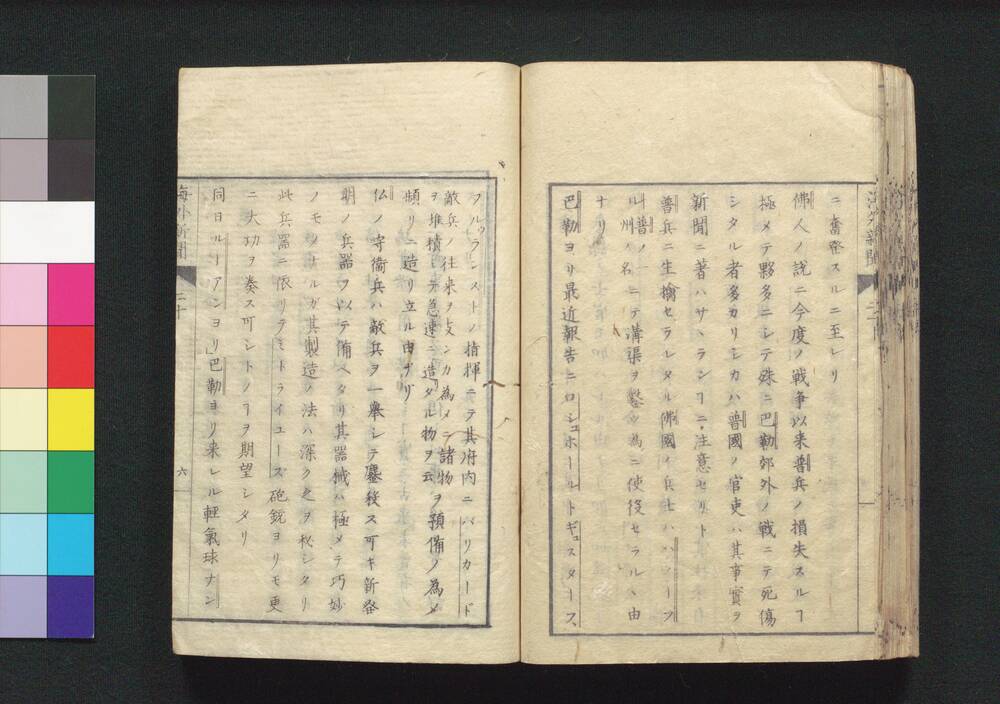 ニ奮發スルニ至レリ
佛人ノ説ニ今度ノ戦争以来普兵ノ損失スルヿ
極メテ夥多ニシテ殊ニ巴勒郊外ノ戦ニテ死傷
シタル者多カリシカハ普國ノ官吏ハ其事實ヲ
新聞ニ著ハサヽランヿニ注意セリト
普兵ニ生擒セラレタル佛國ノ兵士ハハノーフ
ル普ノ一州ノ名ニテ溝渠ヲ鑿ツ為ニ使役セラルヽ由
ナリ
巴勒ヨリ最近報告ニロシュホールトギュスターフ
フルウランストノ指揮ニテ其府内ニバリカード
敵兵ノ往来ヲ支ンカ為メニ諸物ヲ堆積シテ急速ニ造タル物ヲ云ヲ預備ノ為メ
頻リニ造リ立ル由ナリ
仏ノ守衛兵ハ敵兵ヲ一擧シテ鏖殺ス可キ新發
明ノ兵器ヲ以テ備ヘタリ其器械ハ極メテ巧妙
ノモノナルガ其製造ノ法ハ深ク之ヲ秘シタリ
此兵器ニ依リテミトライユース砲銃ヨリモ更
ニ大功ヲ奏ス可シトノヿヲ期望シタリ
同日ルーアンヨリ巴勒ヨリ来レル軽氣球ナン
海外新聞
二十
六